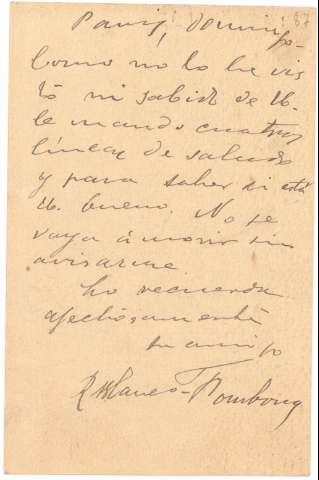 Paris, Domingo.
Como no lo he vis
to ni sabido de U.
le mando cuatro
líneas de saludo
y para saber si está
U. bueno. No se
vaya á morir sin
avisarme.
Lo recuerda
afectuosamente
su amigo
R Blanco-Fombona